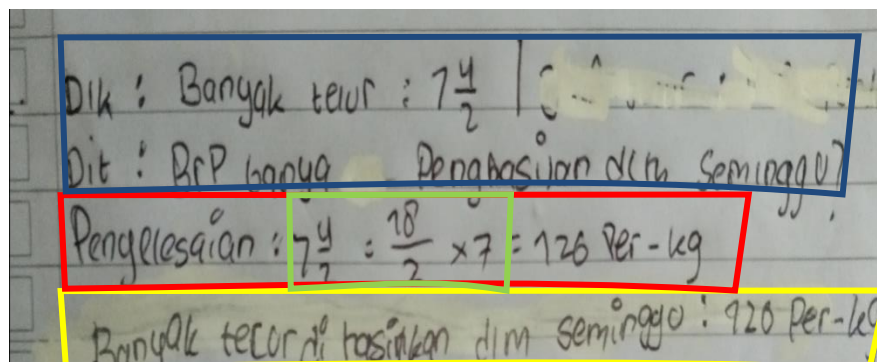 Dik : Banyak telur : 7 4/2 |
Dit : BrP banya Penghasilan dlm seminggu?
Penyelesaian : 7 4/2 = 18/2 × 7 = 126 Per-kg
Banyak telur di hasilkan dlm seminggu : 126 Per-kg